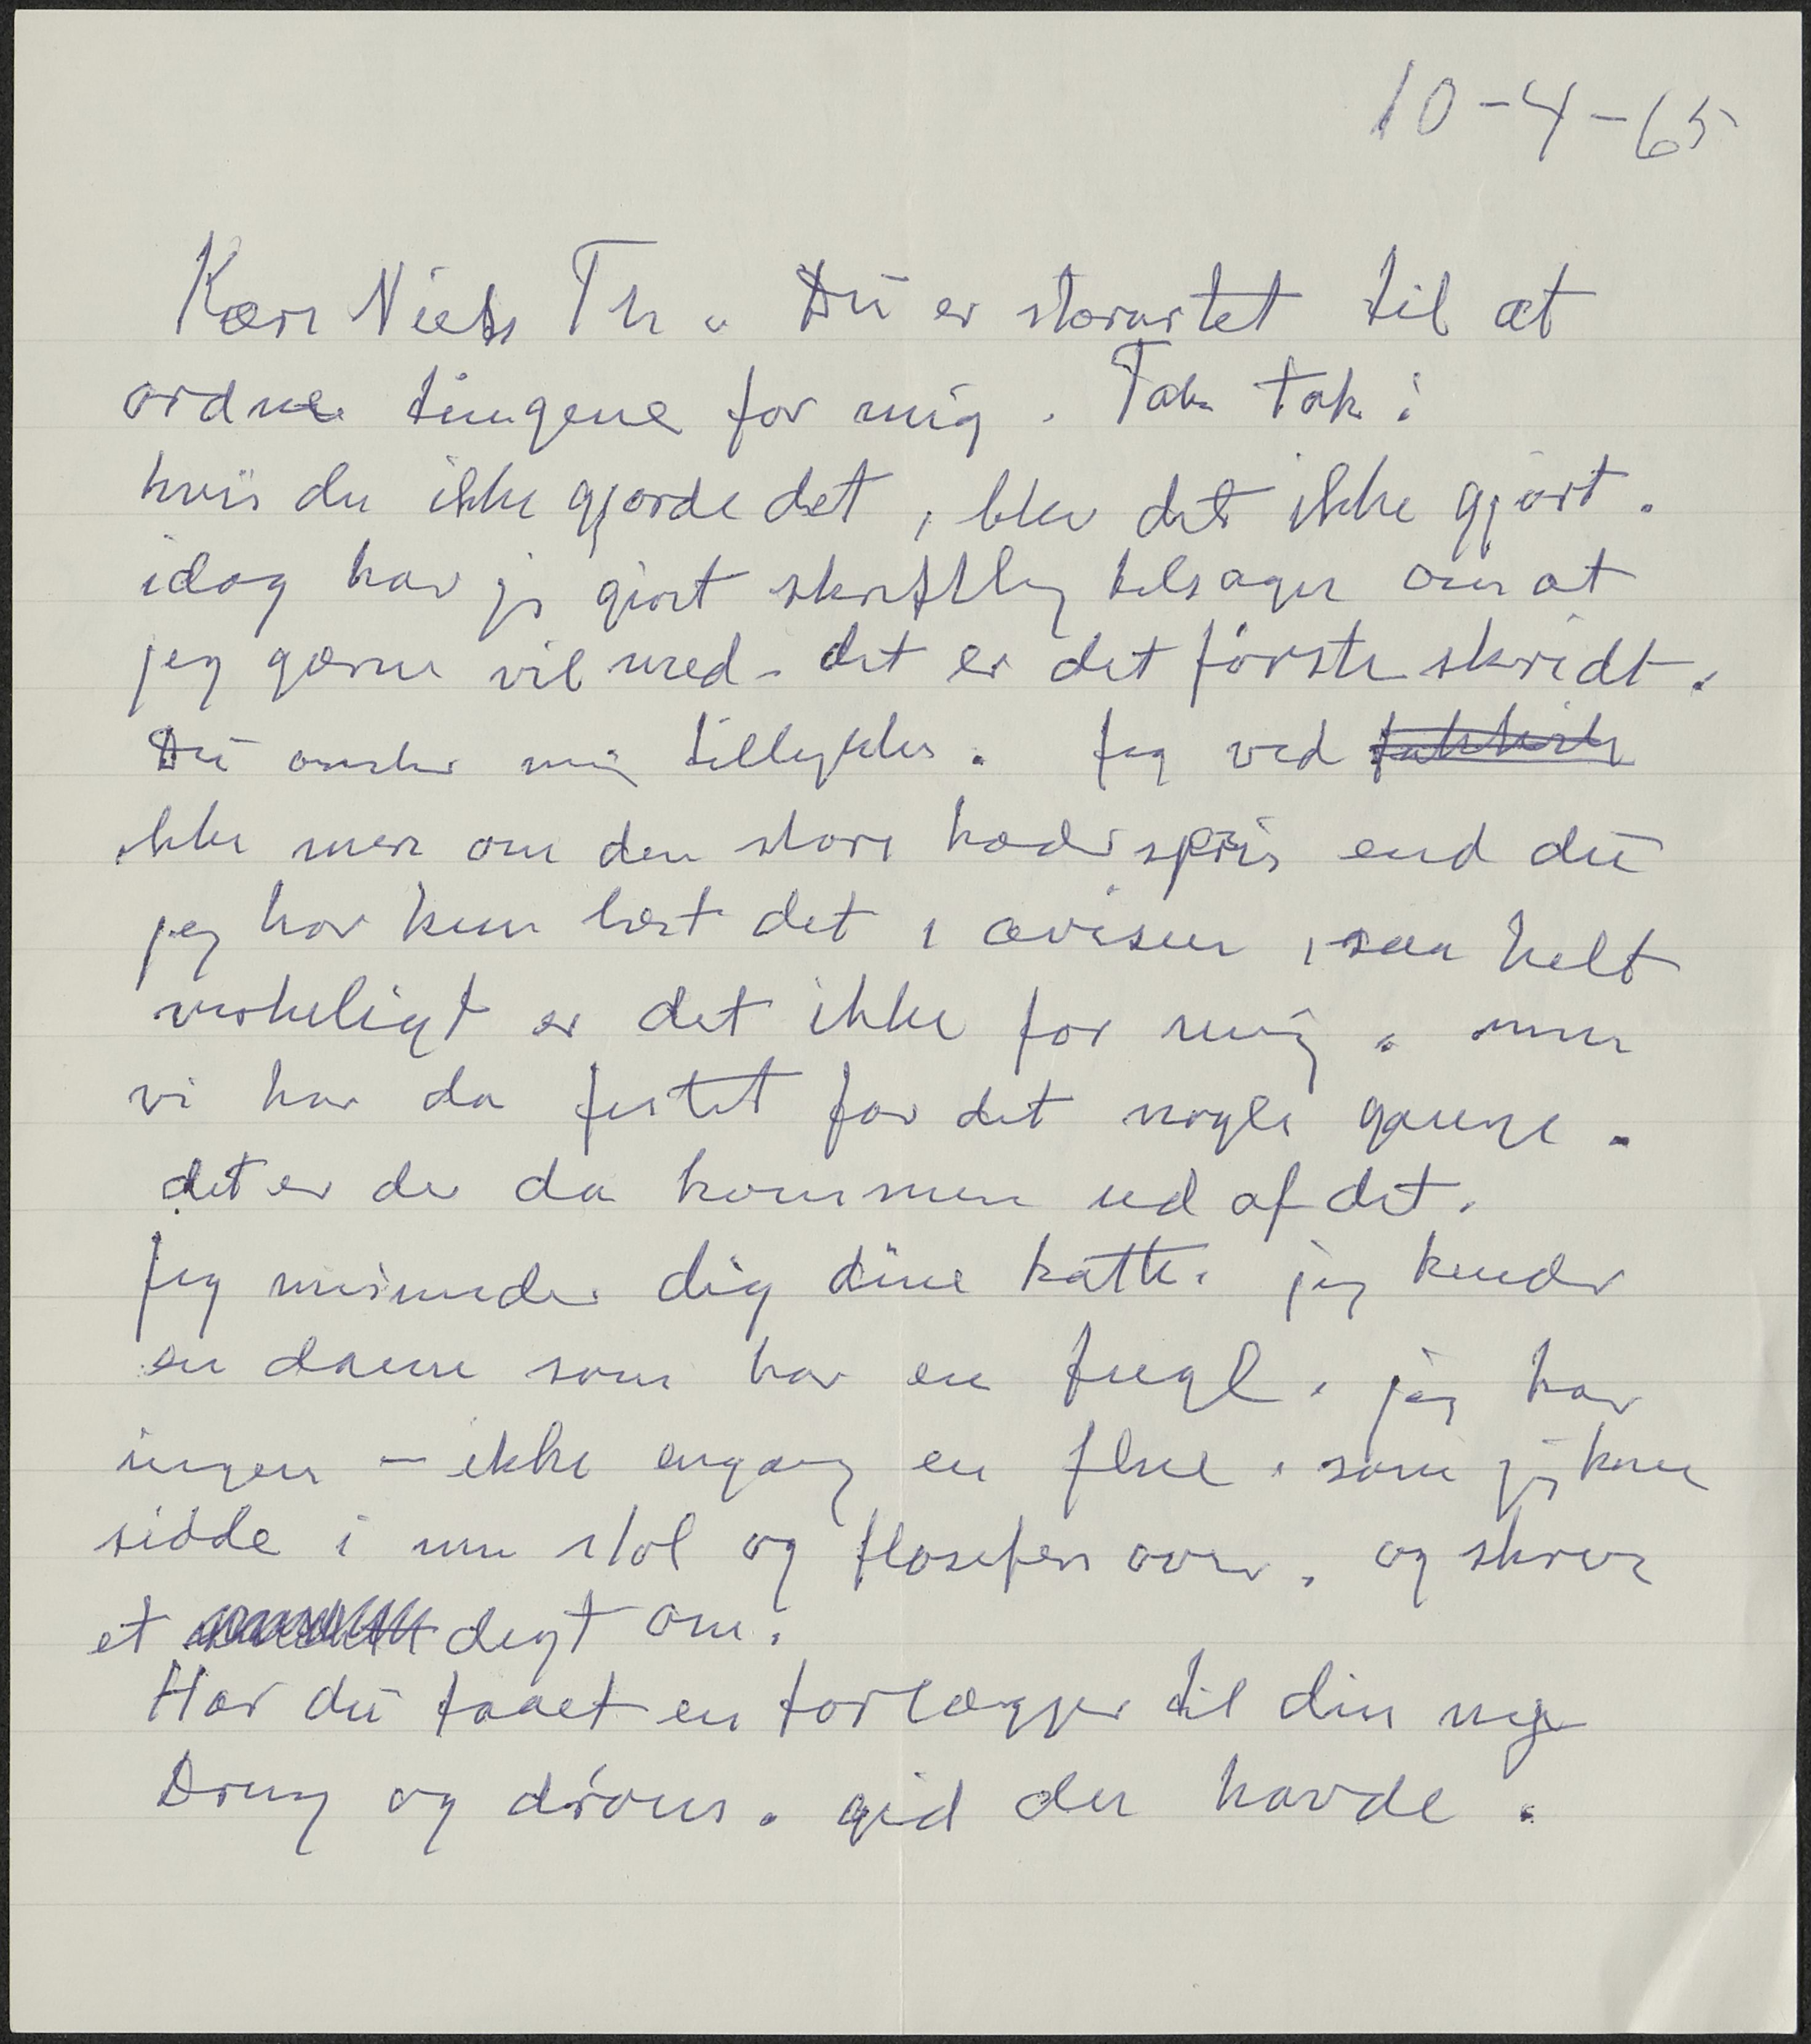 10-4-65
Kære Niels Th. Du er storartet til at
ordne tingene for mig. Tak tak!
hvis du ikke gjorde det, blev det ikke gjort.
idag har jeg gjort skriftlig tilsagn om at
jeg gærne vil med. det er det første skridt.
Du ønsker mig tillykke. Jeg ved
ikke mere om den store hæderspris end du
jeg har kun læst det i avisen, saa helt
virkeligt er det ikke for mig. men
vi har da festet for det nogle gange.
det er der da kommen ud af det.
Jeg misunder dig dine katte. jeg kender
en dame som har en fugl. jeg har
ingen - ikke engang en flue. som jeg kan
sidde i min stol og filosofere over. og skrive
et digt om.
Har du faaet en forlægger til din nye
Drøm og drøm. gid du havde.